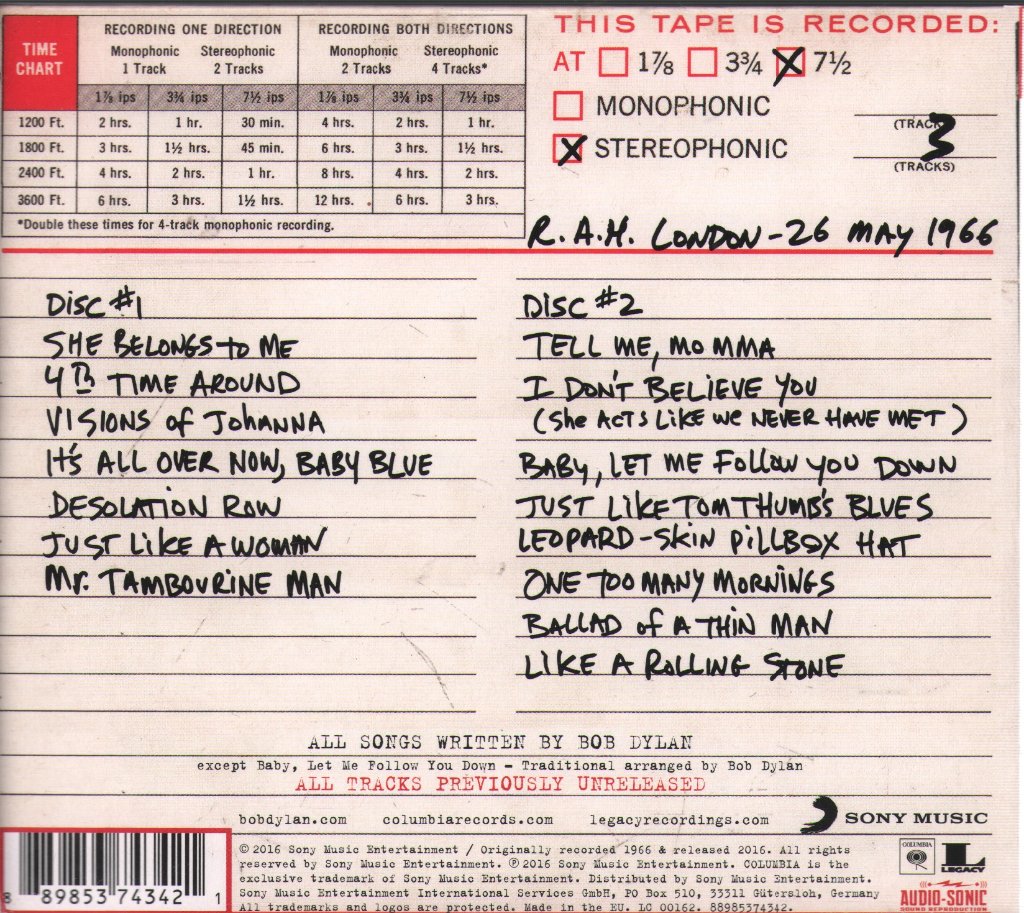 TIME CHART
RECORDING ONE DIRECTION
RECORDING BOTH DIRECTIONS
Monophonic 1 Track
Stereophonic 2 Tracks
Monophonic 2 Tracks
Stereophonic 4 Tracks*
1⅞ ips 3¾ ips 7½ ips 1⅞ ips 3¾ ips 7½ ips
1200 Ft. 2 hrs. 1 hr. 30 min. 4 hrs. 2 hrs. 1 hr.
1800 Ft. 3 hrs. 1½ hrs. 45 min. 6 hrs. 3 hrs. 1½ hrs.
2400 Ft. 4 hrs. 2 hrs. 1 hr. 8 hrs. 4 hrs. 2 hrs.
3600 Ft. 6 hrs. 3 hrs. 1½ hrs. 12 hrs. 6 hrs. 3 hrs.
*Double these times for 4-track monophonic recording.
THIS TAPE IS RECORDED:
AT 1⅞ 3¾ X 7½
MONOPHONIC
(TRACK
X STEREOPHONIC
3
(TRACKS)
R.A.H. LONDON - 26 MAY 1966
DISC #1
SHE BELONGS to ME
4th TIME AROUND
VISIONS of JOHANNA
It's ALL OVER NOW, BABY BLUE
DESOLATION ROW
JUST LIKE A WOMAN
Mr. TAMBOURINE MAN
DISC #2
TELL ME, MOMMA
I DON'T BELIEVE YOU
(She ACTS LIKE WE NEVER HAVE MET)
BABY, LET ME FOLLOW YOU DOWN
JUST LIKE TOM THUMB'S BLUES
LEOPARD-SKIN PILLBOX HAT
ONE TOO MANY MORNINGS
BALLAD of A THIN MAN
LIKE A ROLLING STONE
ALL SONGS WRITTEN BY BOB DYLAN
except Baby, Let Me Follow You Down - Traditional arranged by Bob Dylan
ALL TRACKS PREVIOUSLY UNRELEASED
bobdylan.com columbiarecords.com legacyrecordings.com
SONY MUSIC
© 2016 Sony Music Entertainment / Originally recorded 1966 & released 2016. All rights
reserved by Sony Music Entertainment. ℗ 2016 Sony Music Entertainment. COLUMBIA is the
exclusive trademark of Sony Music Entertainment. Distributed by Sony Music Entertainment.
Sony Music Entertainment International Services GmbH, PO Box 510, 33311 Gütersloh, Germany
All trademarks and logos are protected. Made in the EU. LC 00162. 88985374342.
COLUMBIA
L
LEGACY
AUDIO-SONIC
SOUND REPRODUCTION
8 89853 74342 1